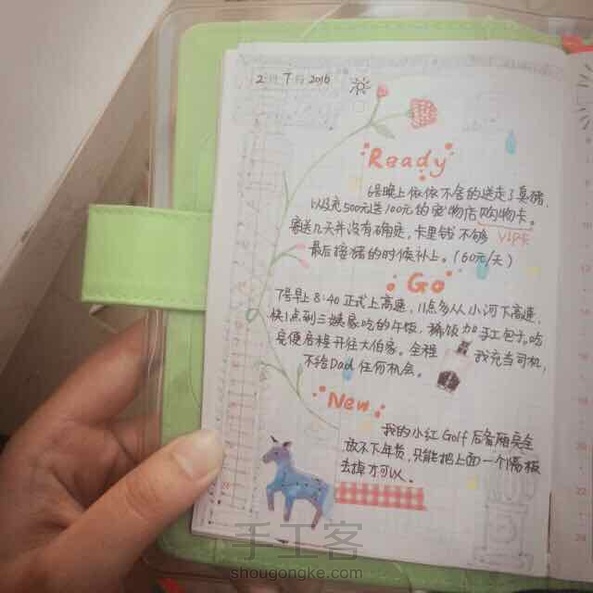 2月7日 2016
Ready
6号晚上依依不舍的送走了莫猪,
以及充500元送100元的宠物店购物卡。
寄送几天并没有确定,卡里钱不够
VIP卡
最后接猪的时候补上。(60元/天)
Go
7号早上8:40正式上高速,11点多从小河下高速,
快1点到三姨家吃的午饭,稀饭加手工包子。吃
完便启程开往大伯家。全程 我充当司机,
不给Dad任何机会。
New
我的小红Golf后备箱完全
放不下年货,只能把上面一个隔板
去掉才可以。
手工客
shougongke.com